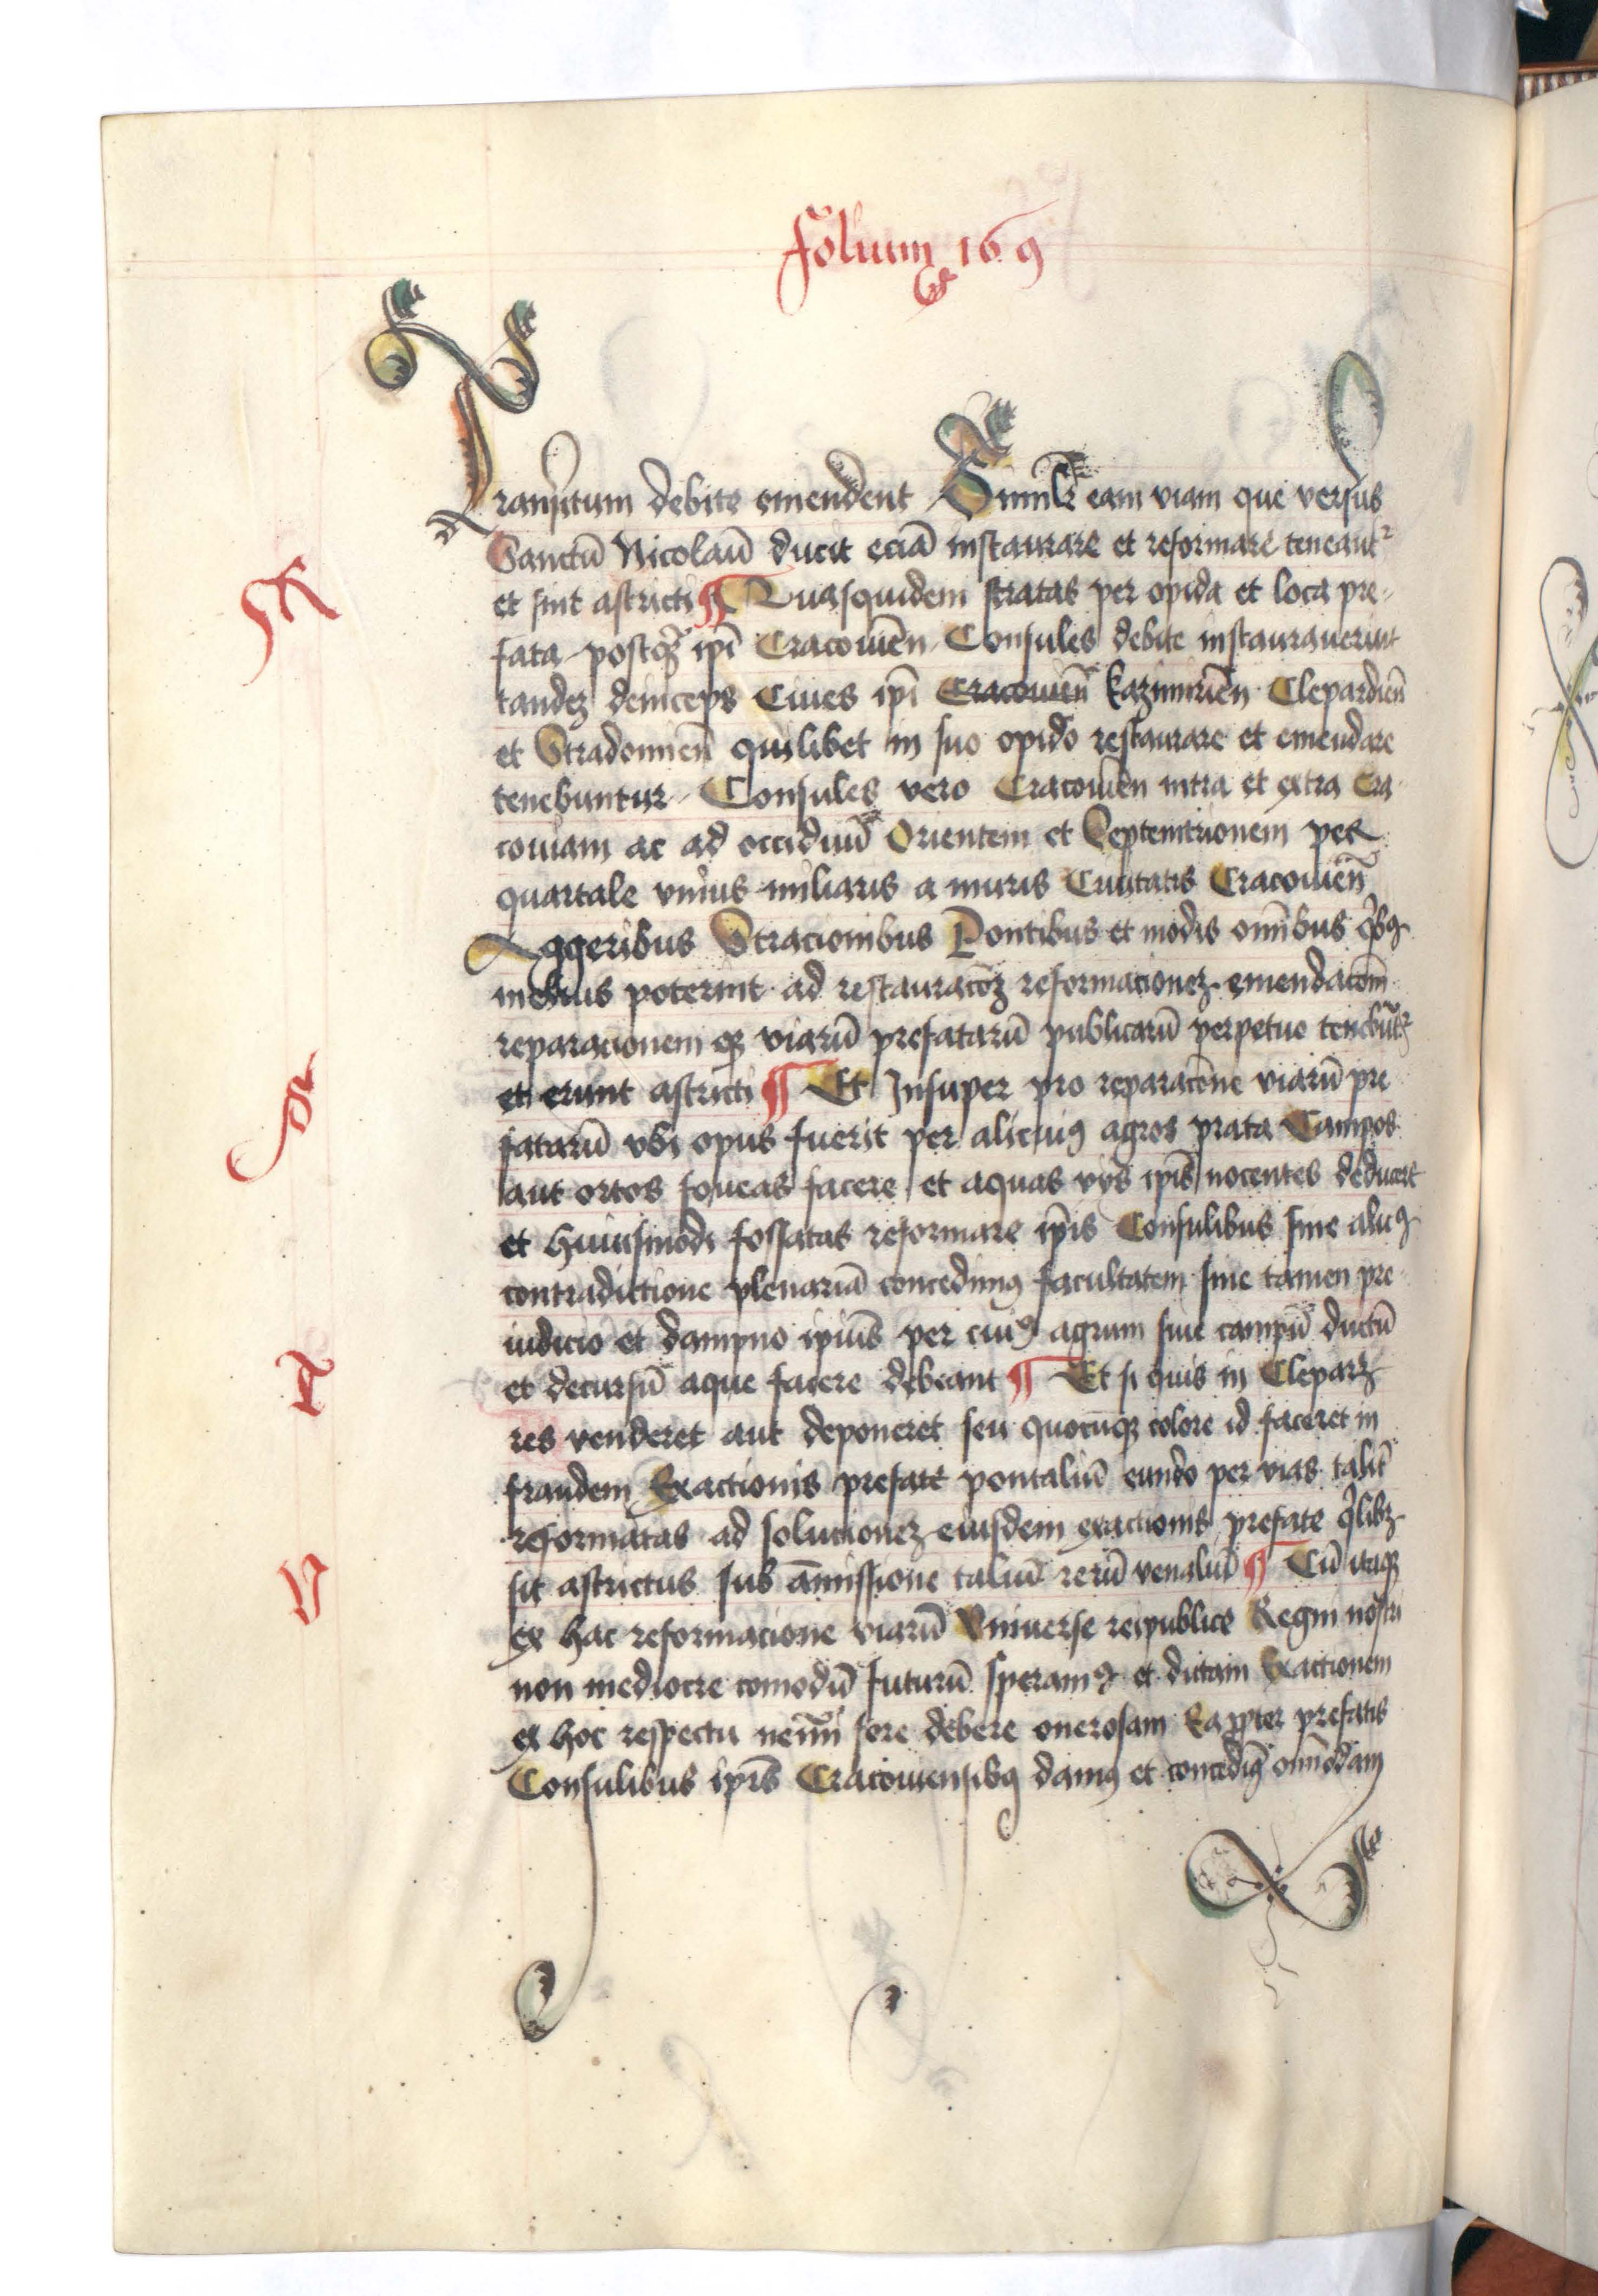 Folium 169
Transitum debite emendent Similr̃ eam viam que versus
Sanctū Nicolaū ducit eciā instaurare et reformare teneantr
et sint astricti ¶ Quasquidem stratas per opida et loca pre-
fata postqz ipī Cracouien̄ Consules debite instaurauerint
tandez deinceps Ciues ipī Cracouien̄ Kazimirien̄ Clepardien̄
et Stradomien̄ quilibet in suo opido restaurare et emendare
tenebuntur Consules vero Cracouien̄ intra et extra Cra-
couiam ac ad occiduū Orientem et Septemtrionem per
quartale vnius miliaris a muris Ciuitatis Cracouien̄
Aggeribus Stracionibus Pontibus et modis om̄ibus qͥbꝯ
melius poterint ad restauracōꝫ reformacionez emendacōm̄
reparacionem qꝫ viarū prefatarū publicarū perpetue tenebūtr
et erunt astricti ¶ Et Insuper pro reparacōne viarū pre
fatarū vbi opus fuerit per alicuiꝯ agros prata Campos
aut ortos foueas facere et aquas vijs ipīs nocentes deducere
et huiusmodi fossatas reformare ipīs Consulibus sine aliqͣ
contradictione plenariā concedimꝯ facultatem sine tamen pre-
iudicio et dampno ipīus per cuiꝯ agrum siue campū ductū
et decursū aque facere debeant ¶ Et si quis in Cleparz
res venderet aut deponeret seu quocūqꝫ colore id faceret in
fraudem Exactionis prefate pontaliū eundo per vias talit̄
reformatas ad solucionez eiusdem exactionis prefate qͥlibꝫ
sit astrictus sub āmissione taliū rerū venaliū ¶ Cū itaqꝫ
ex hac reformacione viarū Vniuerse reipublice Regni nostri
non mediocre comodū futurū speramꝯ et dictam Exactionem
ex hoc respectu nem̄i fore debere onerosam Eapropter prefatis
Consulibus ipīs Cracouiensibꝯ damꝯ et concedimꝯ om̄imodam